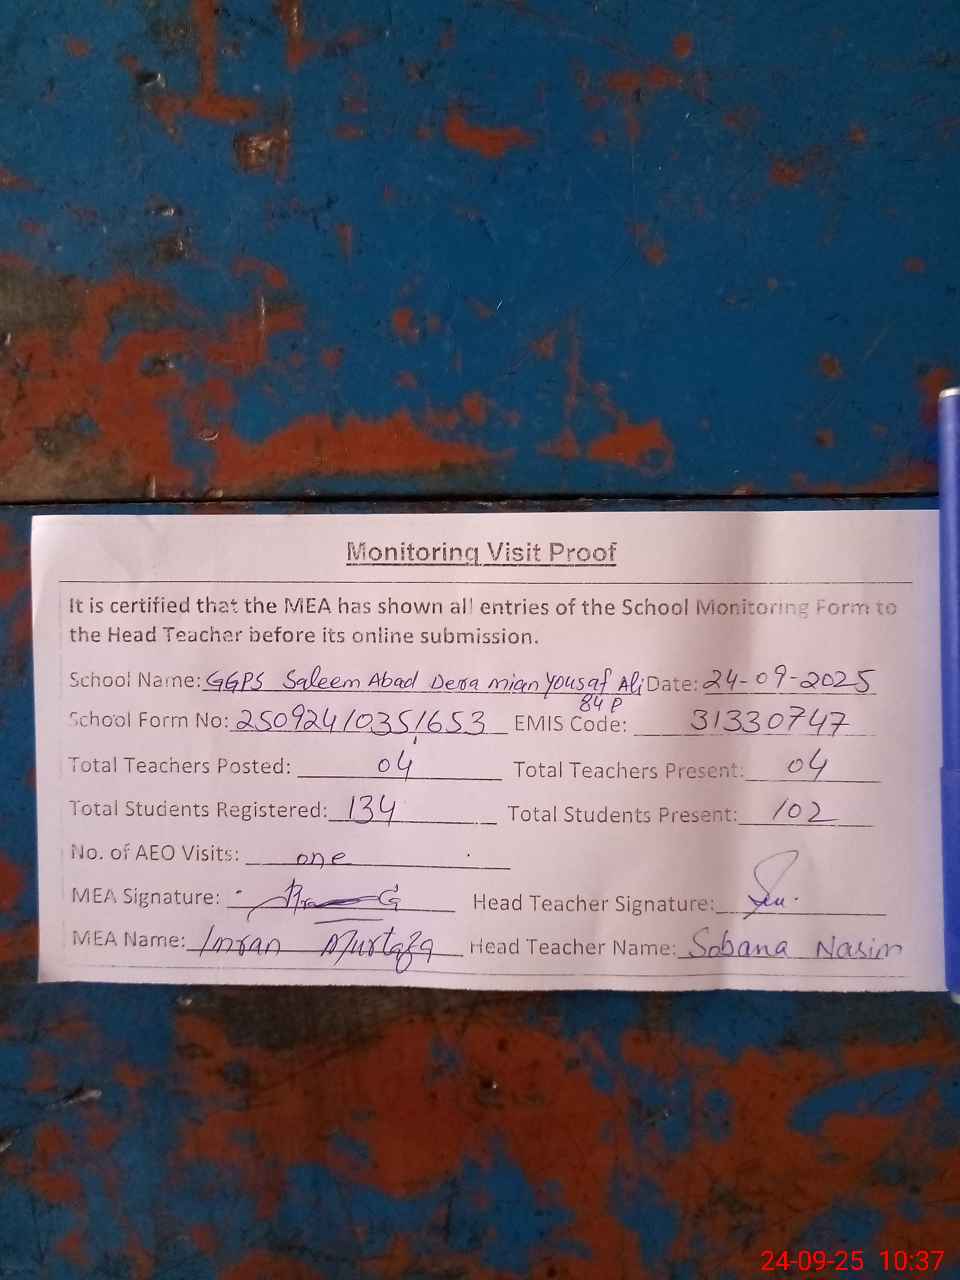 Monitoring Visit Proof
It is certified that the MEA has shown all entries of the School Monitoring Form to
the Head Teacher before its online submission.
School Name: GGPS Saleem Abad Dera mian Yousaf Ali Date: 24-09-2025
84 P
School Form No: 25092410351653 EMIS Code: 31330747
Total Teachers Posted: 04 Total Teachers Present: 04
Total Students Registered: 134 Total Students Present: 102
No. of AEO Visits: one
MEA Signature: Head Teacher Signature:
MEA Name: Imran Murtaza Head Teacher Name: Sobana Nasim
24-09-25 10:37